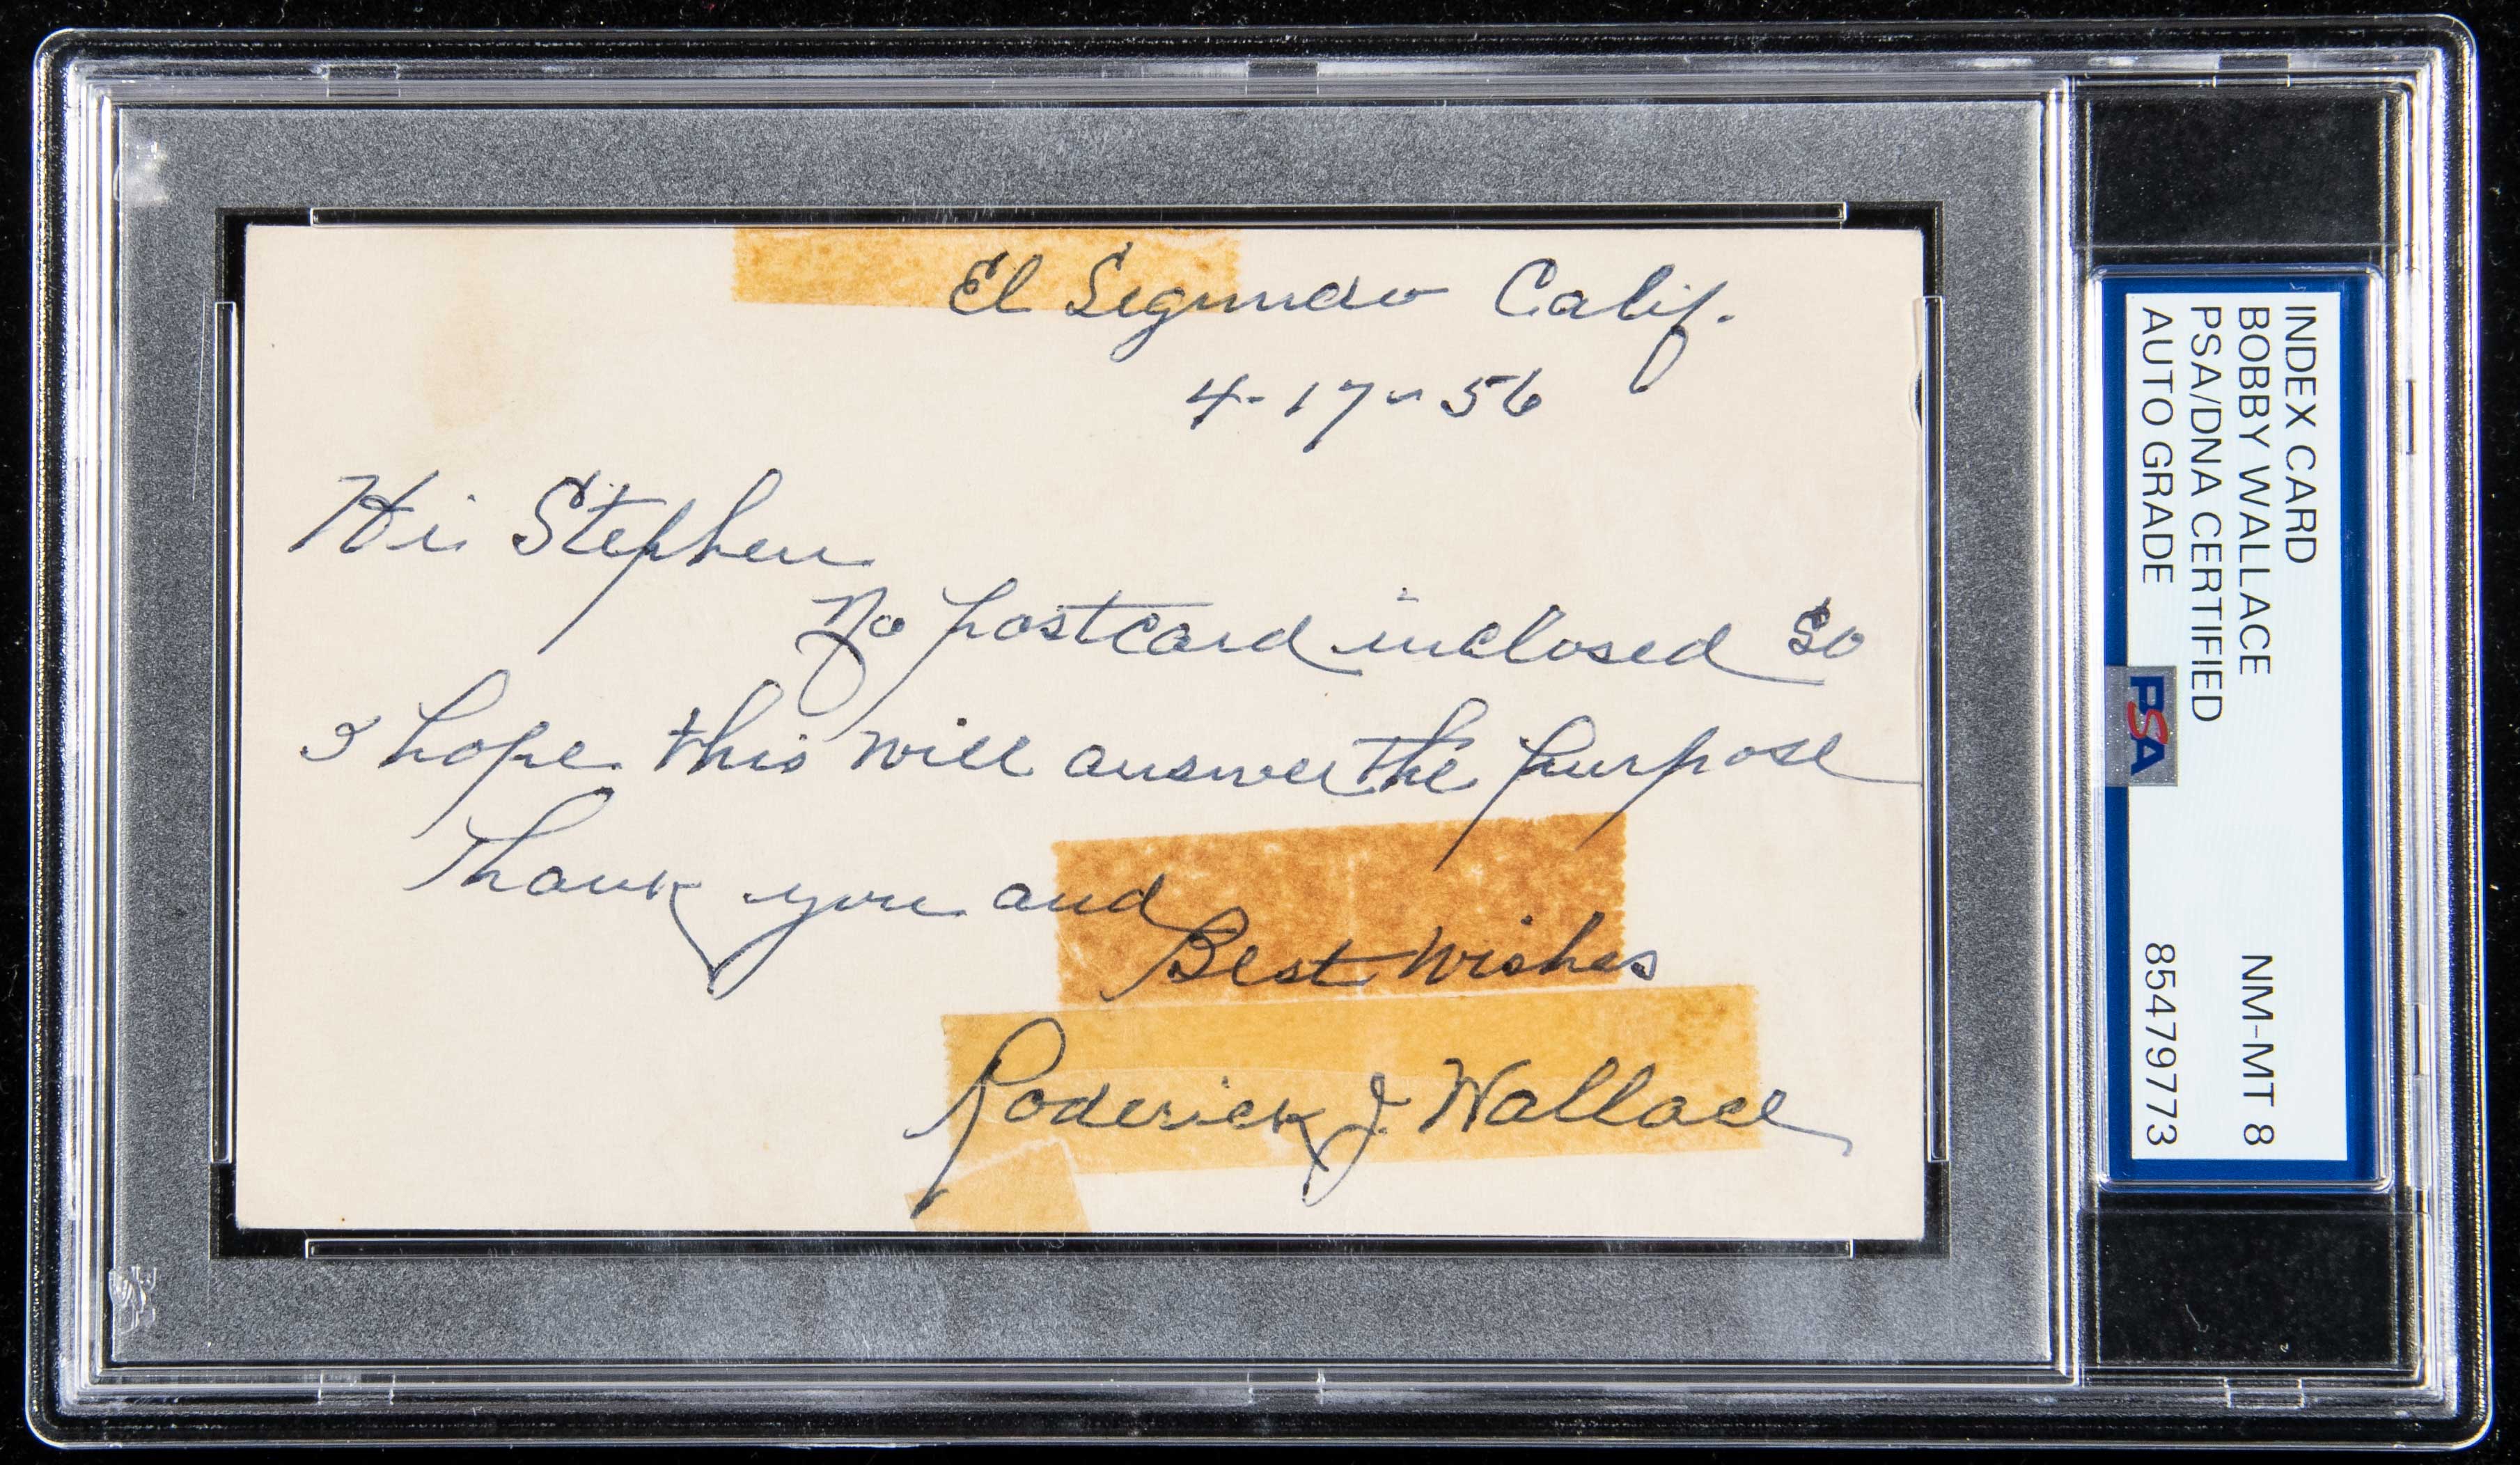 El Segundo Calif.
4-17-56
Hi Stephen
No postcard inclosed so
I hope this will answer the purpose
Thank you and
Best Wishes
Roderick J. Wallace
INDEX CARD
BOBBY WALLACE NM-MT 8
PSA/DNA CERTIFIED
AUTO GRADE 85479773
PSA